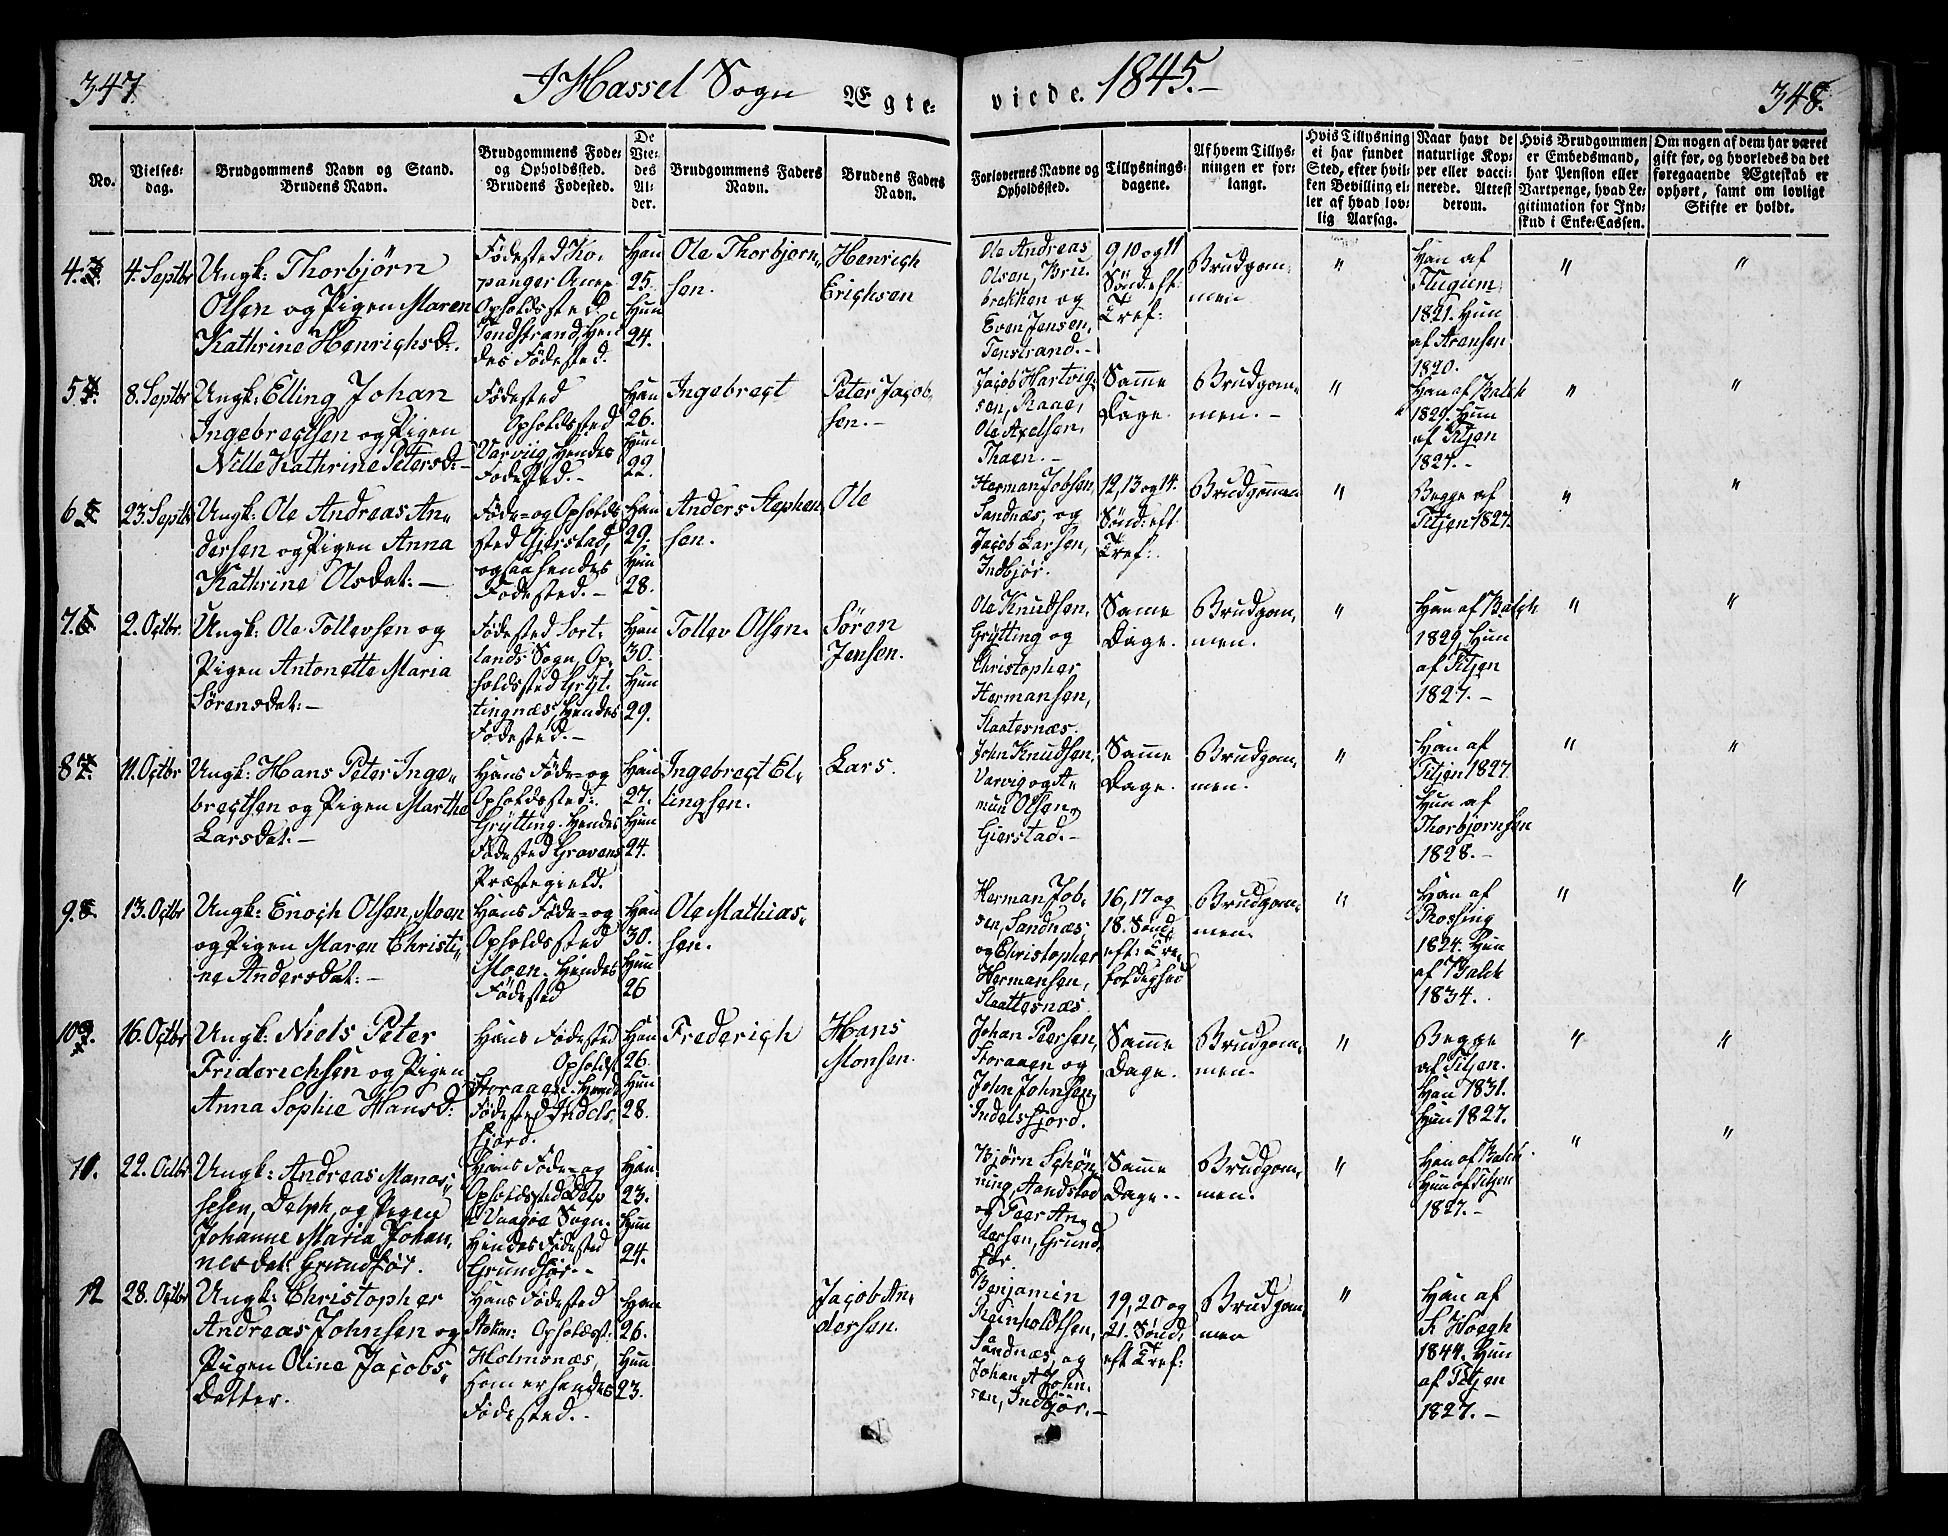 347.
I Hassel Sogn Ægte-
viede. 1845.
348.
No.
Vielses-
dag.
Brudgommens Navn og Stand.
Brudens Navn.
Brudgommens Føde-
og Opholdsted.
Brudens Fødested.
De
Vie-
des
Al-
der.
Brudgommens Faders
Navn.
Brudens Faders
Navn.
Forlovernes Navne og
Opholdsted.
Tillysnings-
dagene.
Af hvem Tillys-
ningen er for-
langt.
Hvis Tillysning
ei har fundet
Sted, efter hvil-
ken Bevilling el-
ler af hvad lov-
lig Aarsag.
Naar havt de
naturlige Kop-
per eller vacci-
nerede. Attest
derom.
Hvis Brudgommen
er Embedsmand,
har Pension eller
Vartpenge, hvad Le-
gitimation for Ind-
skud i Enke-Cassen.
Om nogen af dem har været
gift før, og hvorledes da det
foregaaende Ægteskab er
ophørt, samt om lovligt
Skifte er holdt.
4.
4. Septbr
Ungk: Thorbjørn
Olsen og Pigen Maren
Kathrine Henrichsd:
Fødested Ko-
panger
Opholdssted
Tendstrand, Hen
des Fødested.
Han
25.
Hun
24.
Ole Thorbjørn-
sen.
Henrich
Erichsen
Ole Andreas
Olsen, Bru-
brekken og
Even Jensen,
Tenstrand.-
9, 10 og 11
Sönd: eft:
Tref:
Brudgom-
men
"
Han af
Flugum
1821. Hun
af Arensen
1820.
"
"
5.
8. Septbr
Ungk: Elling Johan
Ingebregtsen og Pigen
Nille Kathrine Petersd:-
Fødested
Opholdssted
Varviig, Hendes
Fødested.-
Han
26.
Hun
22.
Ingebregt
Peter Jacob-
sen.-
Jacob Hartvig-
sen, Kaae,
Ole Axelsen,
Thaen.-
Samme
Dage.
Brudgom-
men.-
"
Han af Balch
1829. Hun
af Titjen
1827.-
"
"
6.
23. Septbr
Ungk: Ole Andreas An-
dersen og Pigen Anna
Kathrine Olsdat:-
Føde- og Opholds
sted Gjerstad,
ogsaa hendes
Fødested.-
Han
29.
Hun
28.
Anders Stephen
sen.
Ole
Herman Jobsen,
Sandnæs, og
Jacob Larsen,
Indbjør.
12, 13 og 14.
Sönd: eft
Tref:
Brudgommen
"
Begge af
Titjen 1827.
"
"
7.
2. Octbr.
Ungk: Ole Tollevsen og
Pigen Antonette Maria
Sørensdat:-
Fødested Sort-
lands Sogn, Op-
holdssted Gryt-
tingnæs, Hendes
Fødested.-
Han
30.
Hun
29.
Tollev Olsen.
Sören
Jensen.
Ole Knudsen,
Grytting og
Christopher
Hermansen,
Slaatternæs.
Same
Dage.
Brudgom-
men.
"
Han af Balch
1829, Hun
af Titjen
1827.-
"
"
8.
11. Octbr
Ungk: Hans Peter Inge-
bregtsen og Pigen Marthe
Larsdat:-
Hans Føde- og
Opholdssted:
Grytting. Hendes
Fødested Gravens
Præstegield.
Han
27.
Hun
24.
Ingebregt El-
lingsen.
Lars.
John Knudsen,
Varvig og A-
mun Olsen,
Gierstad.-
Samme
Dage.
Brudgom-
men.
"
Han af
Titjen 1827
Hun af
Thorbjørnsen
1828.-
"
"
9.
13. Octbr
Ungk: Enoch Olsen, Moen
og Pigen Maren Christi-
ne Andersdat:-
Hans Føde- og
Opholdssted
Moen. Hendes
Fødested
Han
30.
Hun
26
Ole Mathias-
sen.
Herman Job-
sen, Sandnæs
og Christopher
Hermansen,
Slaatternæs
16, 17 og
18. Sönd
eft: Tre-
foldighed
Brudgom-
men.
"
Han af
Rossing
1824. Hun
af Balch
1834.
"
"
10
16. Octbr
Ungk: Niels Peter
Friderichsen og Pigen
Anna Sophie Hansd:
Hans Fødested
Opholdst
Storaaen. Hend
Fødested Indels-
fjord.
Han
26.
Hun
28.
Frederich
Hans
Monsen.
Johan Peersen,
Storaaen og
John Johnsen,
Indelsfjord.
Samme
Dage.
Brudgom-
men.
"
Begge
af Titjen.
Han 1831.
Hun 1827.
"
"
11.
22. Octbr
Ungk: Andreas Manas-
sesen, Delph, og Pigen
Johanne Maria Johan-
nesdat: Grundför.
Hans Føde- og
Opholdssted Delp
i Vaagøe Sogn.
Hendes Fødested
Grundför.-
Han
23.
Hun
24.
Bjørn Schøn-
ning, Sandstad
og Peer An-
dersen, Grund-
för.
Samme
Dage.-
Brudgom-
men.
"
Han af Balch.
Hun af Titjen
1827.-
"
"
12
28. Octbr
Ungk: Christopher
Andreas Johnsen og
Pigen Oline Jacobs-
datter.
Hans Fødested
Opholdsst:
Holmsnæs,
som er hendes
Fødested.-
Han
26.
Hun
23.
Jacob An-
dersen.
Benjamin
Reinholdtsen,
Sandnæs, og
Johan A. John-
sen, Indbjör.-
19, 20 og
21. Sönd:
eft Tref:
Brudgom-
men
"
Han af
K Hoegh
1844. Hun
af Titjen
1827.-